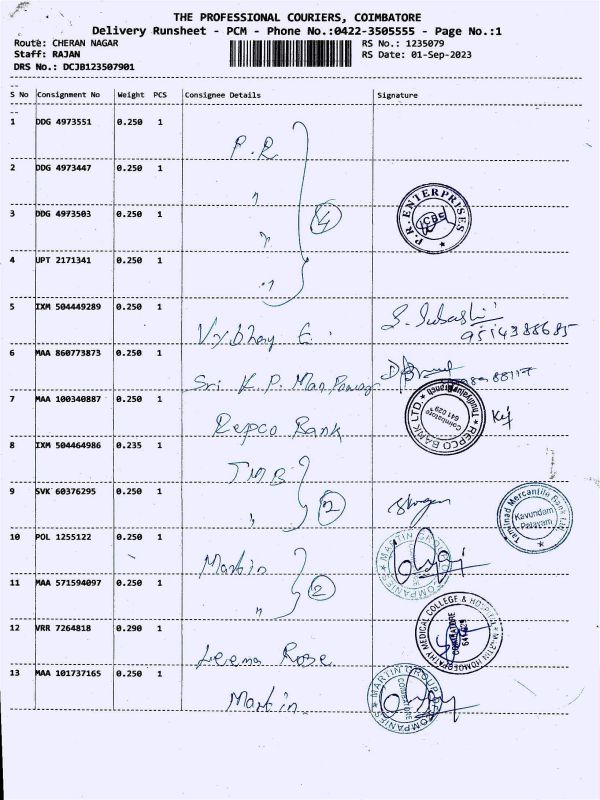 THE PROFESSIONAL COURIERS, COIMBATORE
Delivery Runsheet - PCM - Phone No.:0422-3505555 - Page No.:1
Route: CHERAN NAGAR RS No.: 1235079
Staff: RAJAN RS Date: 01-Sep-2023
DRS No.: DCJB123507901
S No Consignment No Weight PCS Consignee Details Signature
1 DDG 4973551 0.250 1 P.R
2 DDG 4973447 0.250 1 "
3 DDG 4973503 0.250 1 " 4 P.R. ENTERPRISES
4 UPT 2171341 0.250 1 "
5 IXM 504449289 0.250 1 Vybhav E. S. Subashi
9514388685
6 MAA 860773873 0.250 1 Sri K.P. Man Power
7 MAA 100340887 0.250 1 Repco Bank REPCO BANK LTD. Coimbatore 641 029
8 IXM 504464986 0.235 1 TMB
9 SVK 60376295 0.250 1 " 2 Tamilnad Mercantile Bank Ltd. Kavundam Palayam
10 POL 1255122 0.250 1 Martin MARTIN GROUP OF COMPANIES
11 MAA 571594097 0.250 1 " 2
12 VRR 7264818 0.290 1 Leema Rose MARTIN HOMOEOPATHY MEDICAL COLLEGE & HOSPITAL COIMBATORE
13 MAA 101737165 0.250 1 Martin MARTIN GROUP OF COMPANIES COIMBATORE